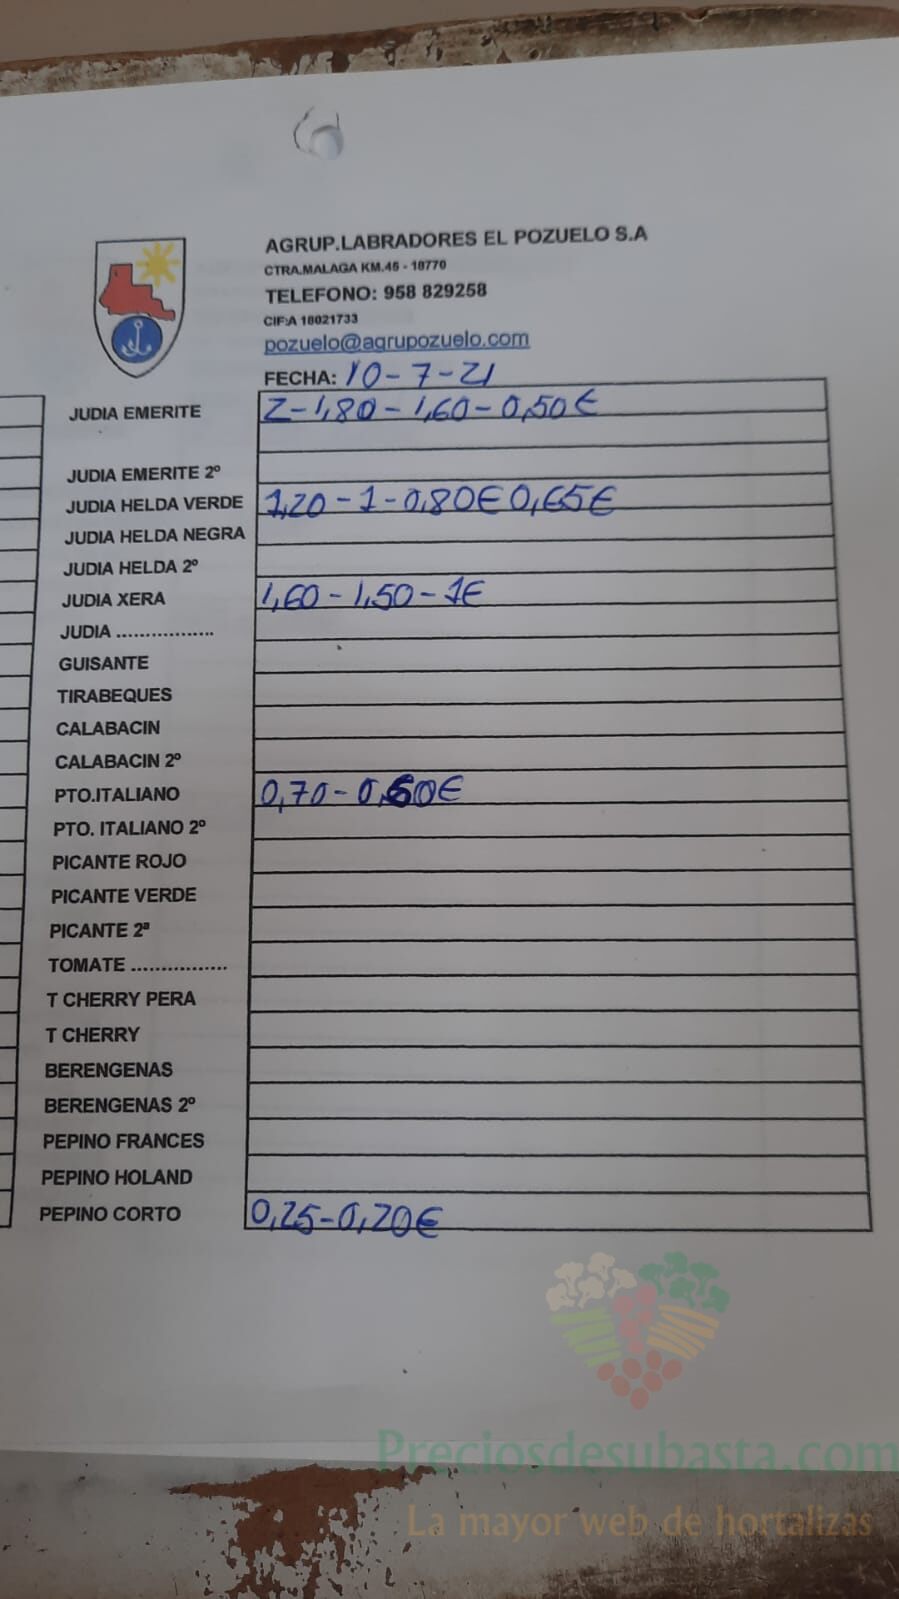 AGRUP.LABRADORES EL POZUELO S.A
CTRA.MALAGA KM.45 - 18770
TELEFONO: 958 829258
CIF:A 18021733
pozuelo@agrupozuelo.com
FECHA: 10-7-21
JUDIA EMERITE 2-1,80-1,60-0,50€
JUDIA EMERITE 2º
JUDIA HELDA VERDE 1,20-1-0,80€ 0,65€
JUDIA HELDA NEGRA
JUDIA HELDA 2º
JUDIA XERA 1,60-1,50-1€
JUDIA .................
GUISANTE
TIRABEQUES
CALABACIN
CALABACIN 2º
PTO.ITALIANO 0,70-0,60€
PTO. ITALIANO 2º
PICANTE ROJO
PICANTE VERDE
PICANTE 2ª
TOMATE ................
T CHERRY PERA
T CHERRY
BERENGENAS
BERENGENAS 2º
PEPINO FRANCES
PEPINO HOLAND
PEPINO CORTO 0,25-0,20€
Preciosdesubasta.com
La mayor web de hortalizas